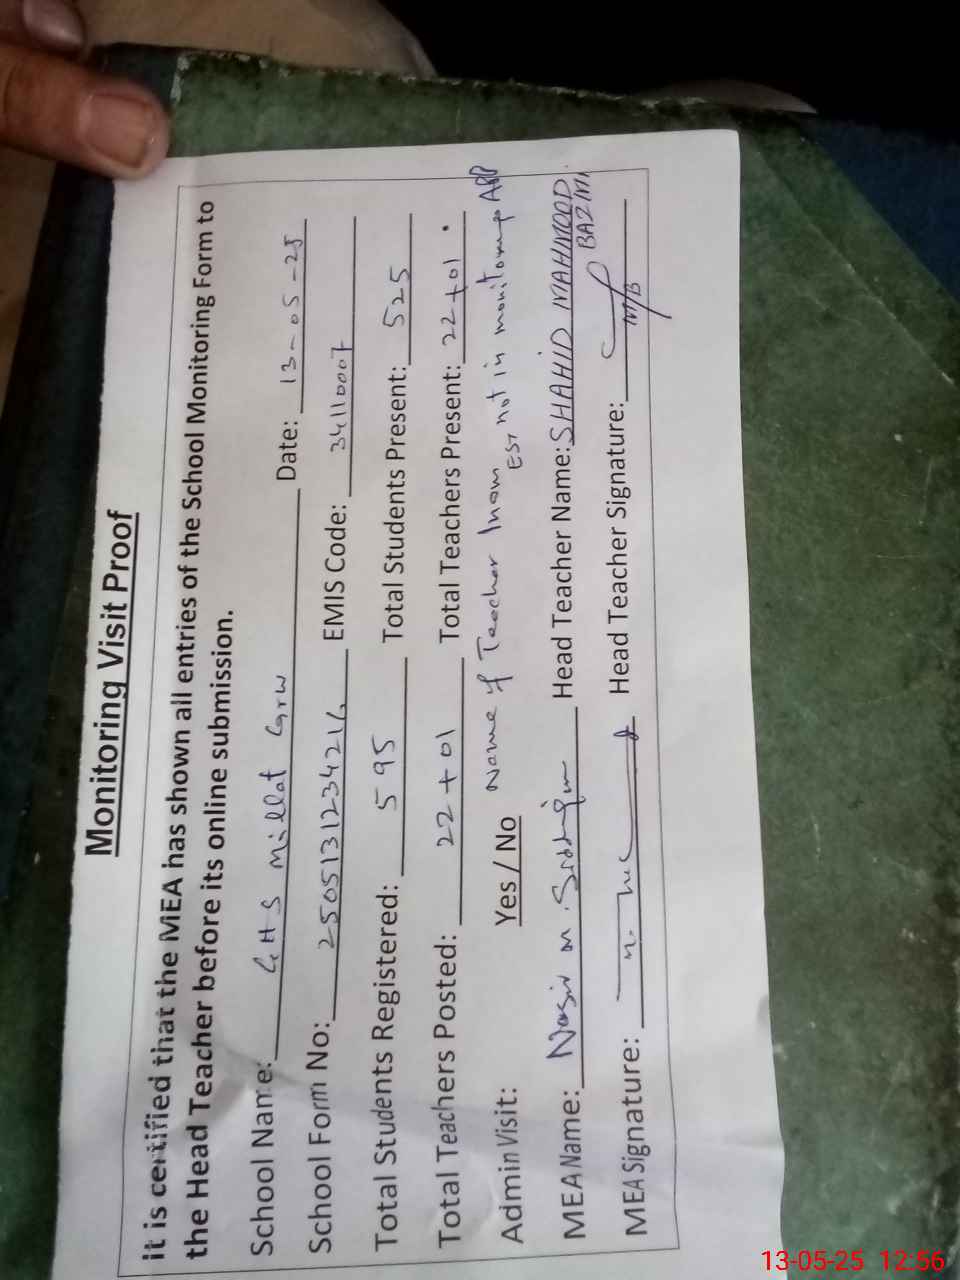 Monitoring Visit Proof
it is certified that the MEA has shown all entries of the School Monitoring Form to
the Head Teacher before its online submission.
School Name: GHS Millat Grw Date: 13-05-25
School Form No: 2505131234216 EMIS Code: 34110007
Total Students Registered: 595 Total Students Present: 525
Total Teachers Posted: 22+01 Total Teachers Present: 22+01
Admin Visit: Yes / No Name of Teacher Inam EST not in monitoring APP
MEA Name: Nasir M. Head Teacher Name: SHAHID MAHMOOD BAZMI
MEA Signature: Head Teacher Signature:
13-05-25 12:56